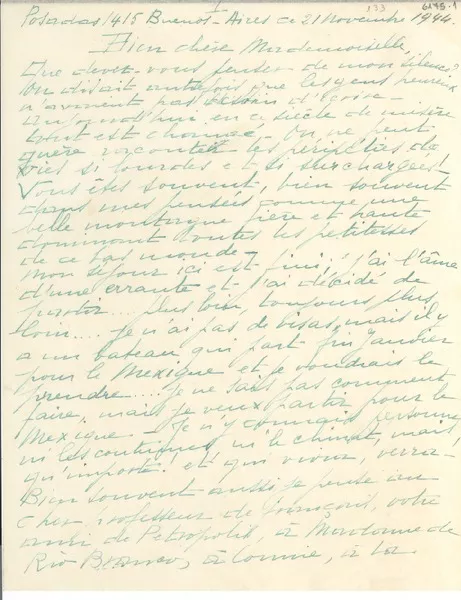 I
133 6175-1
Posadas 1415 Buenos-Aires ce 21 Novembre 1944.
Bien chère Mademoiselle,
Que devez-vous penser de mon silence?
On disait autrefois que les gens heureux
n'avaient pas besoin d'écrire.
Aujourd'hui en ce siècle de misère
tout est changé. On ne peut
guère raconter les péripéties de
vies si lourdes et si surchargées!
Vous êtes souvent, bien souvent
dans mes pensées comme une
belle montagne fière et haute
dominant toutes les petitesses
de ce bas monde -
Mon séjour ici est fini! J'ai l'âme
d'une errante et j'ai décidé de
partir.... plus loin, toujours plus
loin.... Je n'ai pas de visas, mais il y
a un bateau qui part fin Janvier
pour le Mexique et je voudrais le
prendre.... Je ne sais pas comment
faire, mais je veux partir pour le
Mexique - Je n'y connais personne
ni les coutumes ni le climat, mais,
qu'importe! et qui vivra, verra -
Bien souvent aussi je pense au
cher professeur de français, votre
ami de Petropolis, à Madame de
Rio Branco, à Connie, à la